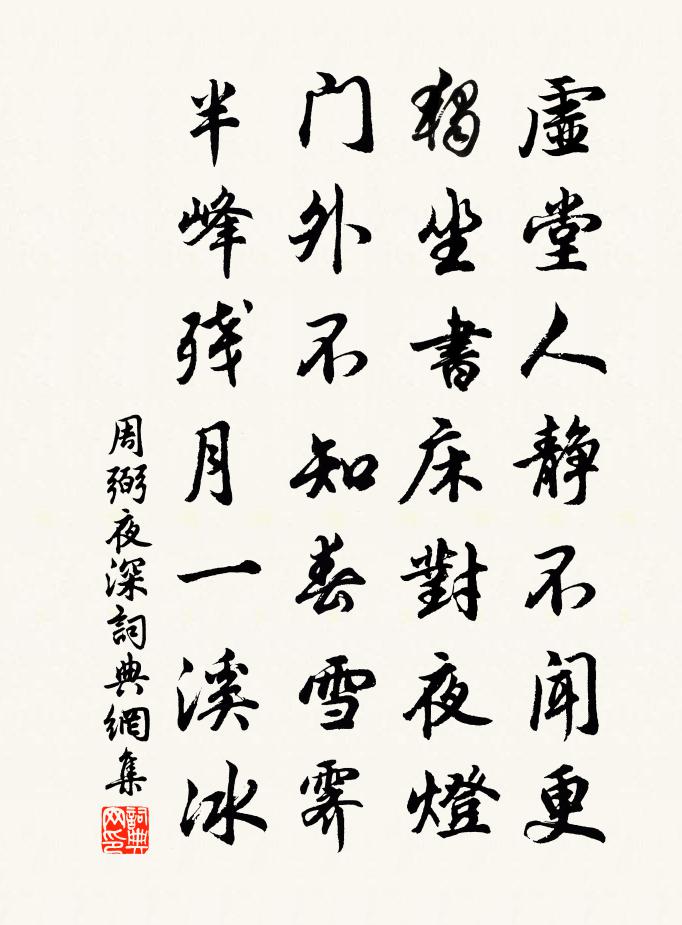 虛堂人静不闻更
獨坐書床對夜燈
门外不知春雪霁
半峰残月一溪冰
周弼夜深詞典網集
詞典网印